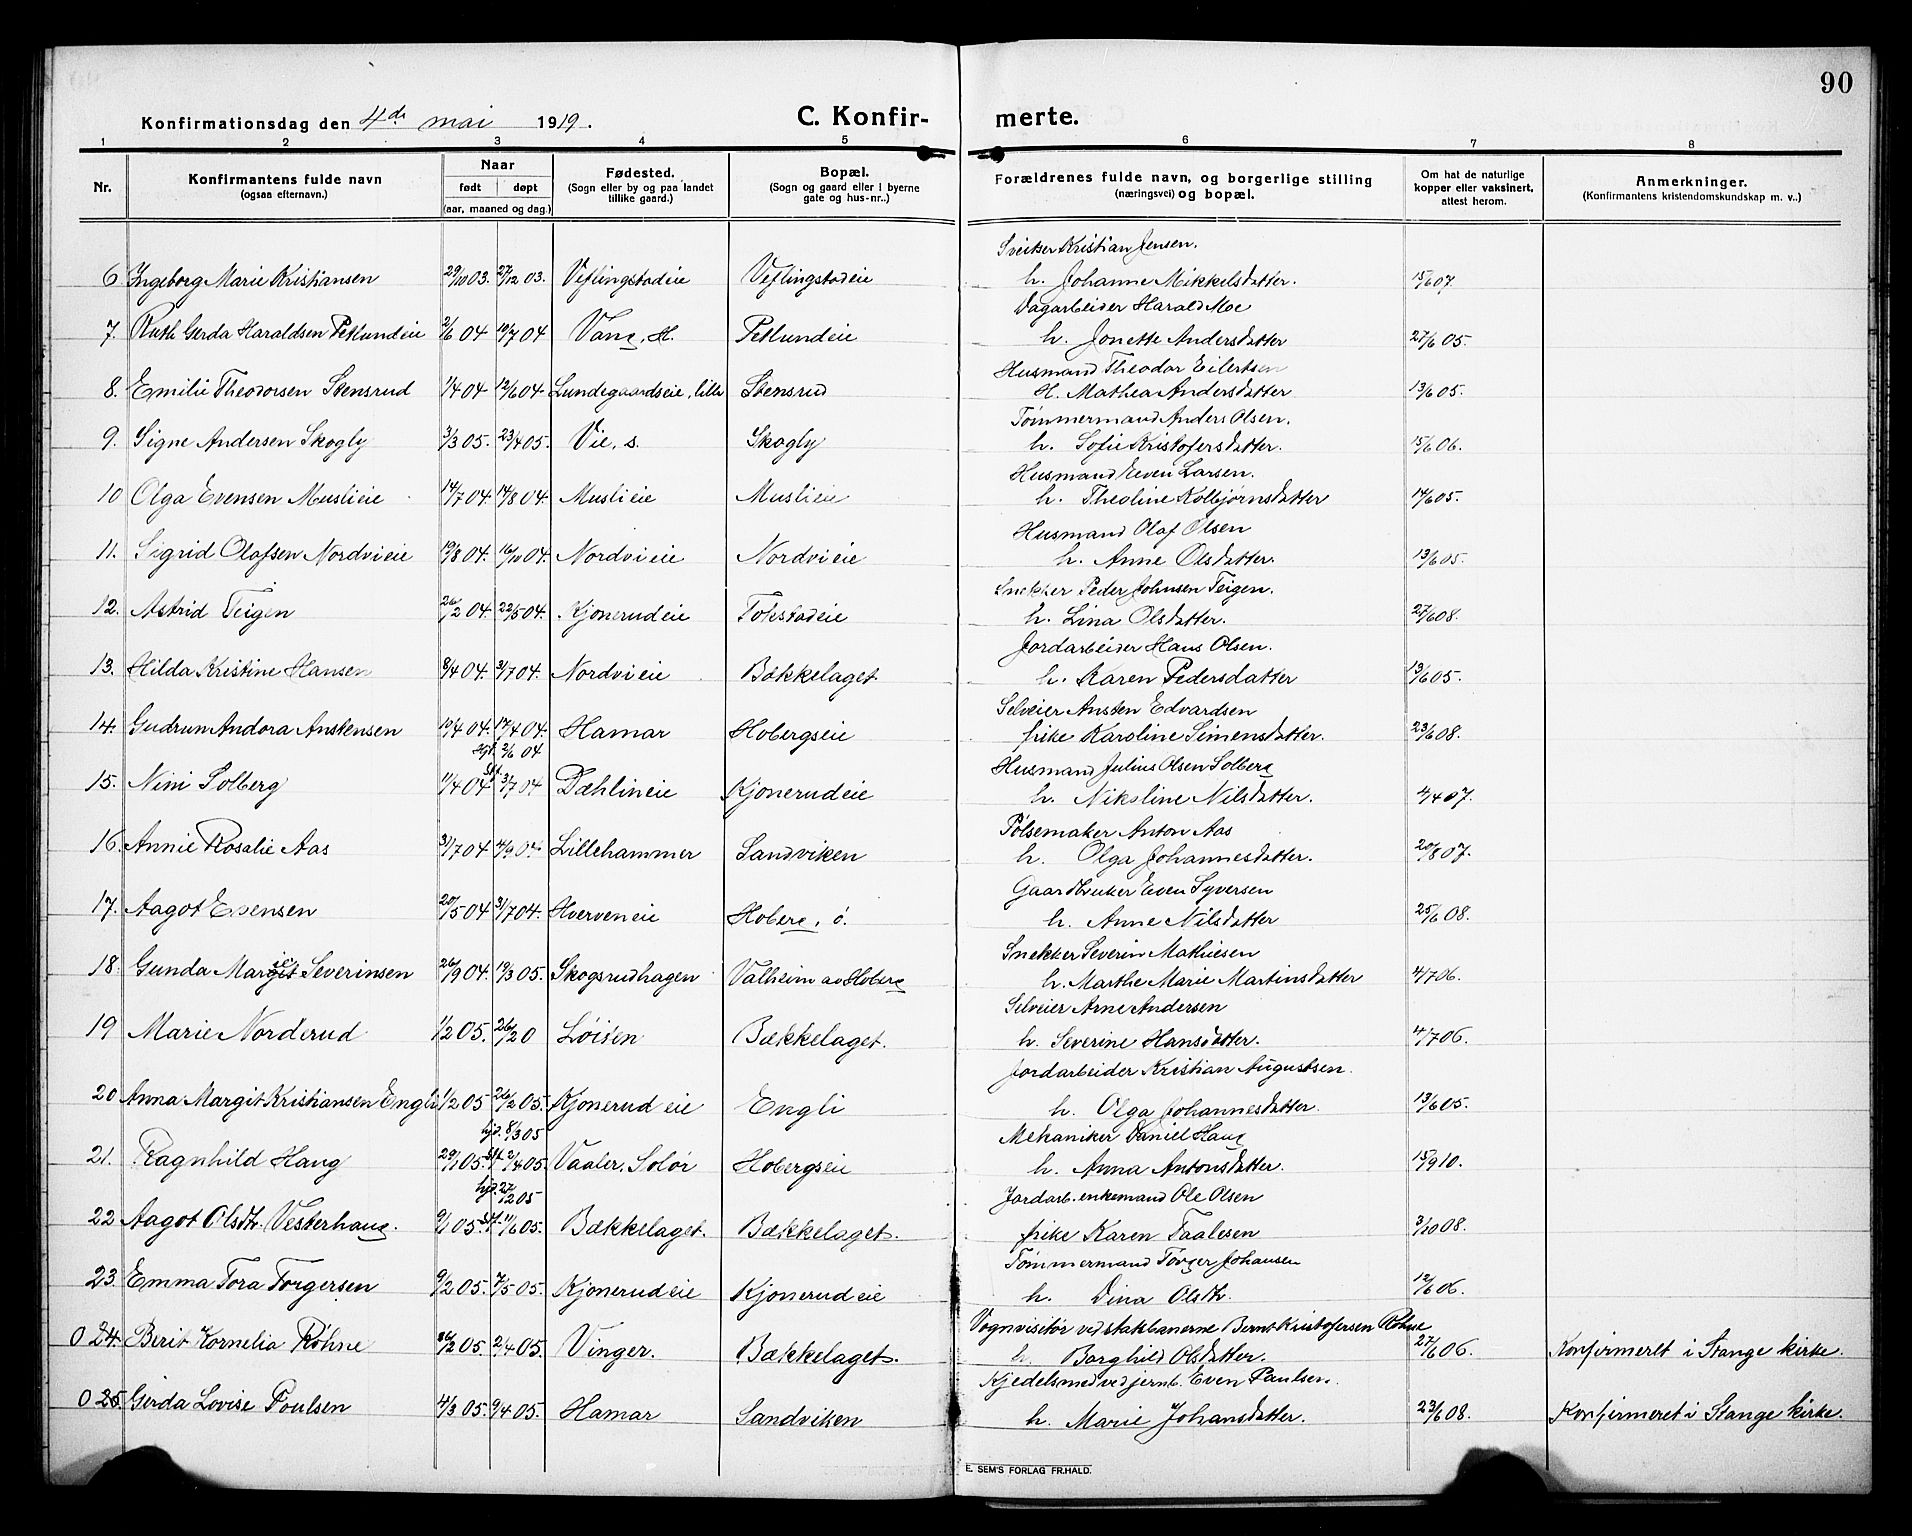 90
Konfirmationsdag den 4de mai 1919. C. Konfir- merte.
1 2 3 4 5 6 7 8
Nr. Konfirmantens fulde navn (ogsaa efternavn.) Naar født døpt (aar, maaned og dag.) Fødested. (Sogn eller by og paa landet tillike gaard.) Bopæl. (Sogn og gaard eller i byerne gate og hus-nr..) Forældrenes fulde navn, og borgerlige stilling (næringsvei) og bopæl. Om hat de naturlige kopper eller vaksinert, attest herom. Anmerkninger. (Konfirmantens kristendomskundskap m. v..)
Sveitser Kristian Jensen.
6 Ingeborg Marie Kristiansen 29/10 03. 27/12 03. Veflingstadeie Veflingstadeie h. Johanne Mikkelsdatter. 15/6 07.
Dagarbeider Harald Moe
7. Ruth Gerda Haraldsen Petlundeie 2/6 04 10/7 04 Vang, H. Petlundeie h. Jonette Andersdatter 27/6 05.
Husmand Theodor Eilertsen
8. Emilie Theodorsen Stensrud 1/4 04 12/6 04 Lundegaardseie, lille Stensrud H. Mathea Andersdatter 13/6 05.
Tømmermand Anders Olsen.
9. Signe Andersen Skogly 3/3 05. 23/4 05. Vie, s. Skogly h. Sofie Kristofersdatter. 15/6 06.
Husmand Even Larsen.
10 Olga Evensen Muslieie 14/7 04. 14/8 04. Muslieie Muslieie h. Theoline Kolbjørnsdatter 14/6 05.
Husmand Olaf Olsen
11. Sigrid Olafsen Nordvieie 19/8 04. 16/10 04. Nordvieie Nordvieie h. Anne Olsdatter. 13/6 05.
Snekker Peder Johnsen Teigen.
12. Astrid Teigen 26/2 04. 22/5 04. Kjonerudeie Tokstadeie h. Lina Olsdatter. 27/6 08.
Jordarbeider Hans Olsen.
13. Hilda Kristine Hansen 8/4 04. 3/7 04. Nordvieie Bækkelaget h. Karen Pedersdatter 13/6 05.
Selveier Ansten Edvardsen
14. Gudrun Andora Anstensen 10/4 04. 17/4 04. Hamar Hobergseie frike Karoline Simensdatter. 23/6 08.
hjd. 2/6 04
Husmand Julius Olsen Solberg
15. Nini Solberg 11/4 04 Stf. 3/7 04 Dæhlineie Kjonerudeie h. Nikoline Nilsdatter. 4/4 07.
Pølsemaker Anton Aas
16. Annie Rosalie Aas 31/7 04 4/9 04. Lillehammer Sandviken h. Olga Johannesdatter. 20/8 07.
Gaardbruker Even Syversen
17. Aagot Evensen 20/5 04 31/7 04. Hverveneie Hoberg, ø. h. Anne Nilsdatter 25/6 08.
Snekker Severin Mathiesen
18. Gunda Margit ie Severinsen 26/9 04. 19/3 05. Skogsrudhagen Valheim av Hoberg h. Marthe Marie Martinsdatter 4/7 06.
Selveier Arne Andersen
19 Marie Norderud 1/2 05. 26/2 0 Løiten Bækkelaget. h. Severine Hansdatter. 4/7 06.
Jordarbeider Kristian Augustsen.
20 Anna Margit Kristiansen Engli 1/2 05 26/2 05. Kjonerudeie Engli h. Olga Johannesdatter. 13/6 05.
hjd. 8/3 05
Mekaniker Daniel Haug
21. Ragnhild Haug 29/1 05. Stf. 2/4 05. Vaaler, Solør Hobergseie h. Anna Antonsdatter. 15/9 10.
hjd. 27/1 05
Jordarb. enkemand Ole Olsen
22 Aagot Olsdtr. Vesterhaug. 9/1 05. Stf. 11/6 05. Bækkelaget. Bækkelaget. frike Karen Faalesen 3/10 08.
Tømmermand Torger Johansen
23. Emma Tora Torgersen 9/2 05. 7/5 05. Kjonerudeie Kjonerudeie h. Dina Olsdtr. 12/6 06.
Vognvisitør ved statsbanerne Bernt Kristofersen Røhne
0 24. Berit Kornelia Røhne 2/2 05. 2/4 05. Vinger. Bækkelaget. h. Borghild Olsdatter. 27/6 06. Konfirmeret i Stange kirke.
Kjedelsmed ved jernb. Even Paulsen.
0 25 Gerda Lovise Poulsen 4/3 05. 9/4 05. Hamar Sandviken h. Marie Johansdatter. 23/6 08. Konfirmeret i Stange kirke.
E. SEM'S FORLAG FR.HALD.